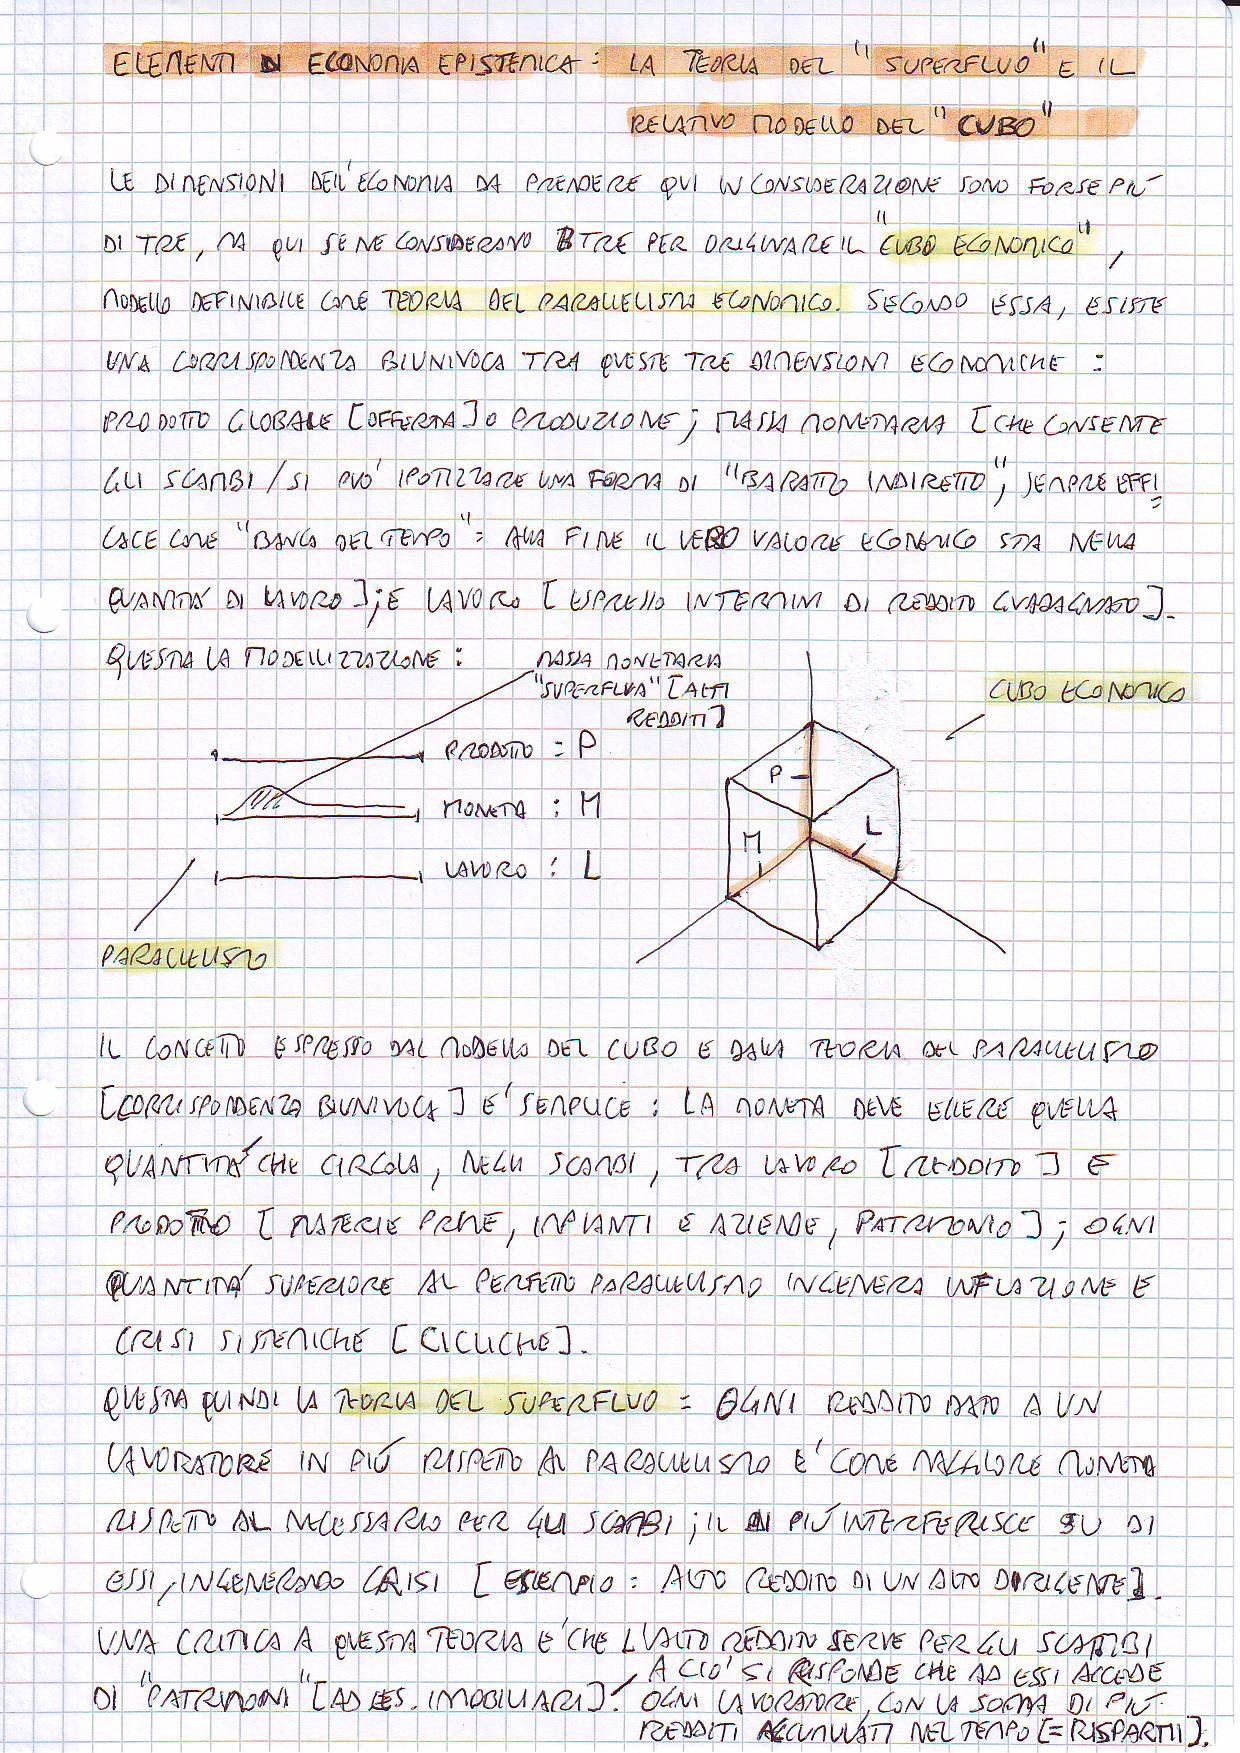 ELEMENTI DI ECONOMIA EPISTEMICA: LA TEORIA DEL "SUPERFLUO" E IL
RELATIVO MODELLO DEL "CUBO"
LE DIMENSIONI DELL'ECONOMIA DA PRENDERE QUI IN CONSIDERAZIONE SONO FORSE PIÚ
DI TRE, MA QUI SE NE CONSIDERANO TRE PER ORIGINARE IL "CUBO ECONOMICO",
MODELLO DEFINIBILE COME TEORIA DEL PARALLELISMO ECONOMICO. SECONDO ESSA, ESISTE
UNA CORRISPONDENZA BIUNIVOCA TRA QUESTE TRE DIMENSIONI ECONOMICHE:
PRODOTTO GLOBALE [OFFERTA] O PRODUZIONE; MASSA MONETARIA [CHE CONSENTE
GLI SCAMBI / SI PUO' IPOTIZZARE UNA FORMA DI "BARATTO INDIRETTO", SEMPRE EFFI
CACE COME "BANCA DEL TEMPO" = ALLA FINE IL VERO VALORE ECONOMICO STA NELLA
QUANTITA' DI LAVORO]; E LAVORO [ESPRESSO IN TERMINI DI REDDITO GUADAGNATO].
QUESTA LA MODELLIZZAZIONE:
MASSA MONETARIA
"SUPERFLUA" [ALTI
REDDITI]
CUBO ECONOMICO
PRODOTTO = P
MONETA : M
LAVORO : L
P
M
L
PARALLELISMO
IL CONCETTO ESPRESSO DAL MODELLO DEL CUBO E DALLA TEORIA DEL PARALLELISMO
[CORRISPONDENZA BIUNIVOCA] E' SEMPLICE: LA MONETA DEVE ESSERE QUELLA
QUANTITA' CHE CIRCOLA, NEGLI SCAMBI, TRA LAVORO [REDDITO] E
PRODOTTO [MATERIE PRIME, IMPIANTI E AZIENDE, PATRIMONIO]; OGNI
QUANTITA' SUPERIORE AL PERFETTO PARALLELISMO INGENERA INFLAZIONE E
CRISI SISTEMICHE [CICLICHE].
QUESTA QUINDI LA TEORIA DEL SUPERFLUO = OGNI REDDITO DATO A UN
LAVORATORE IN PIÚ RISPETTO AL PARALLELISMO E' COME MAGGIORE MONETA
RISPETTO AL NECESSARIO PER GLI SCAMBI; IL DI PIÚ INTERFERISCE SU DI
ESSI, INGENERANDO CRISI [ESEMPIO = ALTO REDDITO DI UN ALTO DIRIGENTE].
UNA CRITICA A QUESTA TEORIA E' CHE L'ALTO REDDITO SERVE PER GLI SCAMBI
DI "PATRIMONI" [AD ES. IMOBILIARI]. A CIO' SI RISPONDE CHE AD ESSI ACCEDE
OGNI LAVORATORE, CON LA SOMMA DI PIÚ
REDDITI ACCUMULATI NEL TEMPO [= RISPARMI].